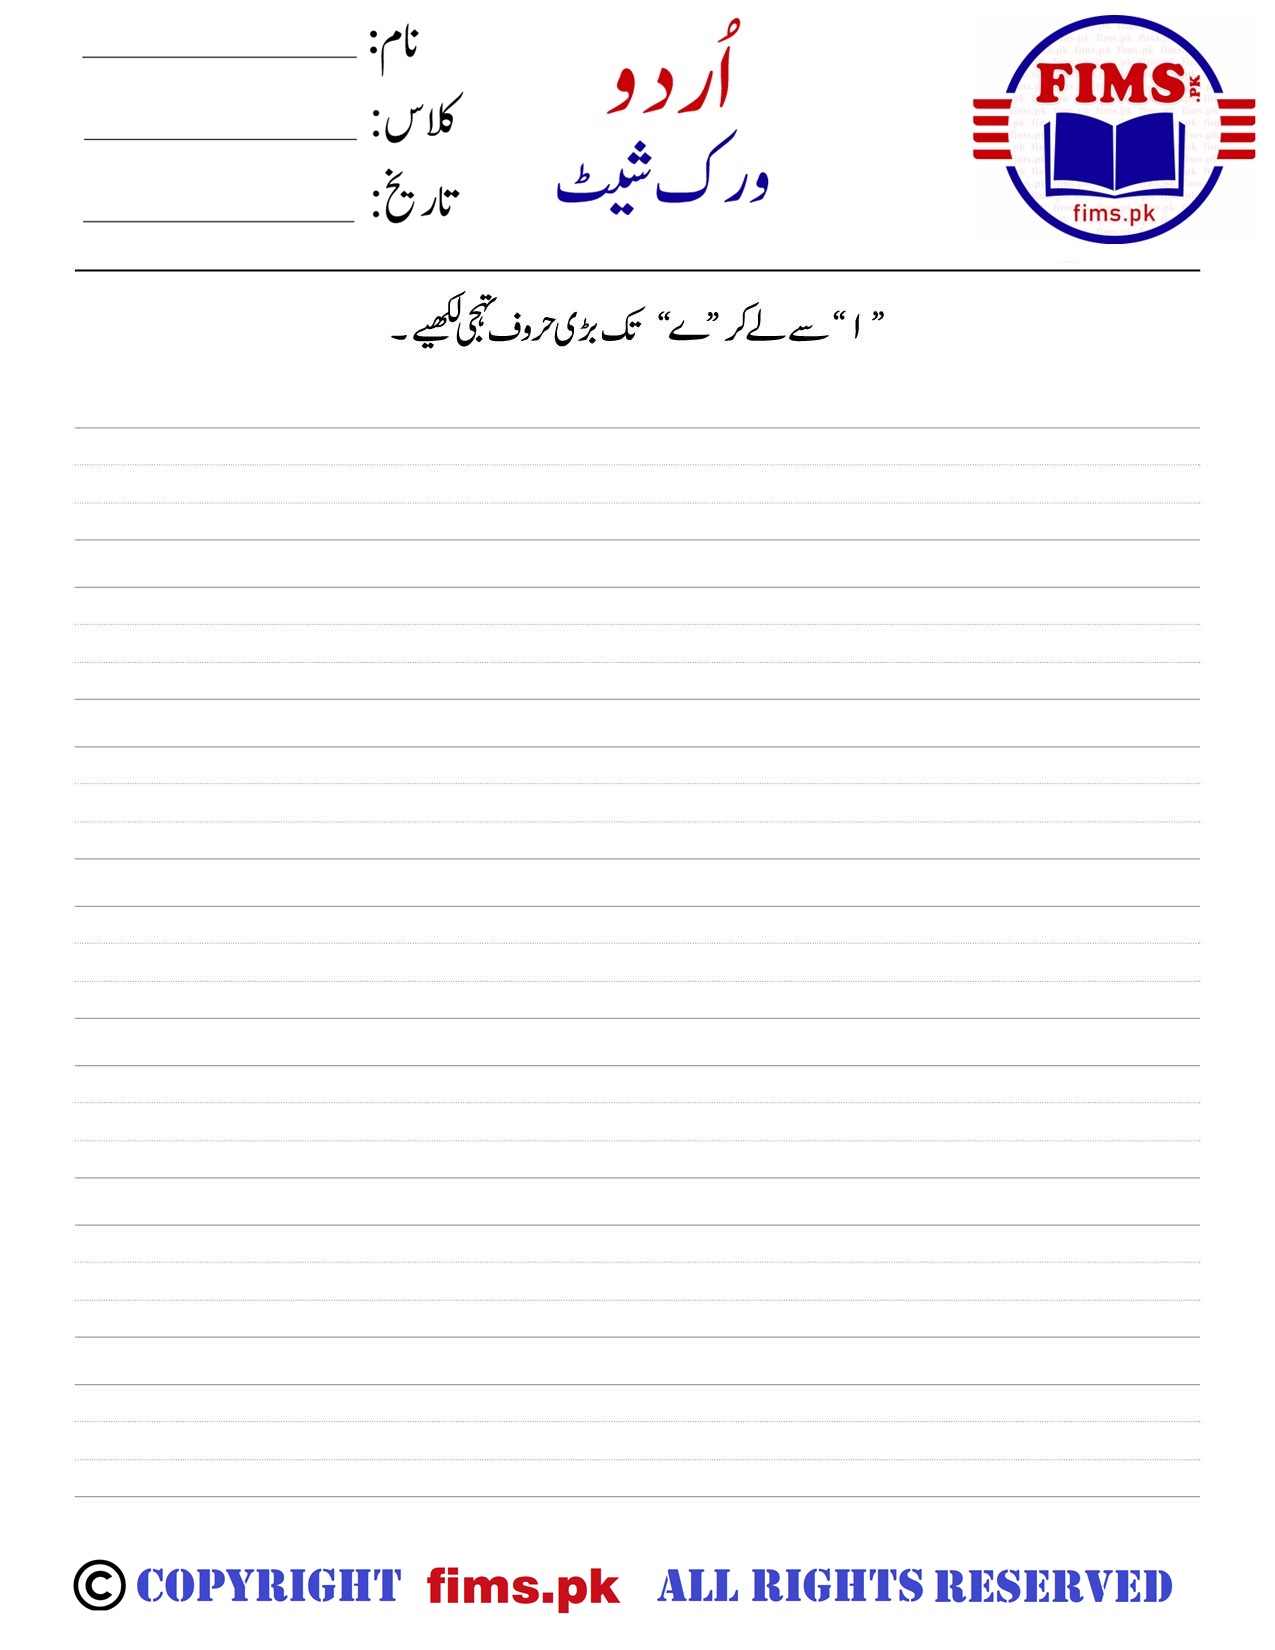 نام:
کلاس:
تاریخ:
اُردو
ورک شیٹ
FIMS.PK
fims.pk
” ا “ سے لے کر ”ے“ تک بڑی حروف تہجی لکھیے ۔
© COPYRIGHT fims.pk ALL RIGHTS RESERVED